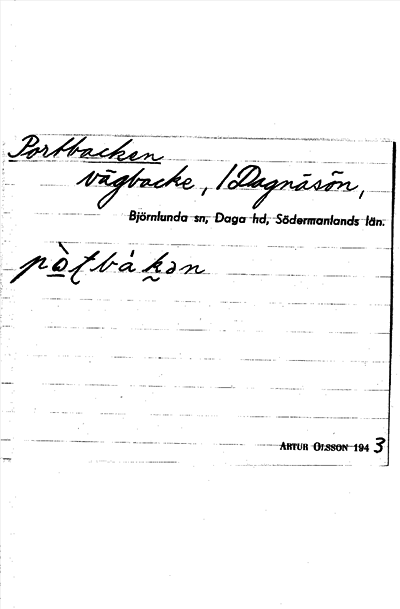 Portbacken
vägbacke, / Dagnäsön,
Björnlunda sn, Daga hd, Södermanlands län.
pò̱ʈbákən
ARTUR OLSSON 1943